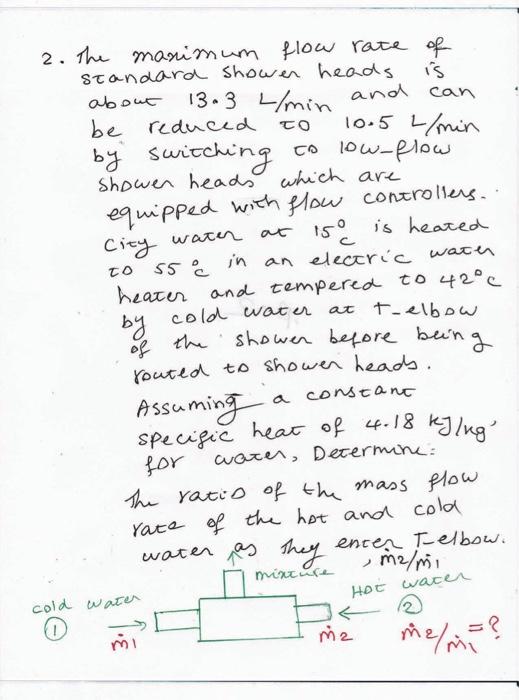 2. The maximum flow rate of
standard shower heads is
about 13.3 L/min and can
be reduced to 10.5 L/min
by switching to low-flow
shower heads which are
equipped with flow controllers.
City water at 15°C is heated
to 55°C in an electric water
heater and tempered to 42°C
by cold water at T-elbow
of the shower before being
routed to shower heads.
Assuming a constant
specific heat of 4.18 kJ/kg°
for water, Determine:
The ratio of the mass flow
rate of the hot and cold
water as they enter T-elbow.
, ṁ2/ṁ1
mixture
cold water
Hot water
① ②
ṁ1 ṁ2 ṁ2/ṁ1 = ?